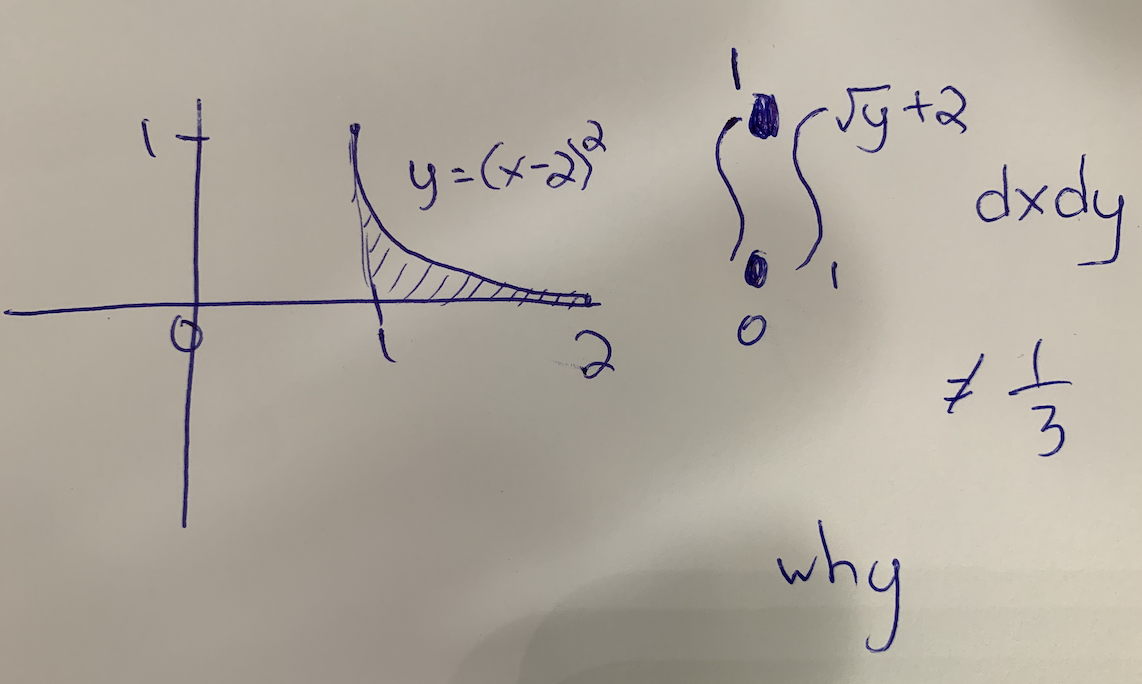 1
y=(x-2)²
0
1
2
∫₀¹ ∫₁^(√y+2) dxdy
≠ 1/3
why